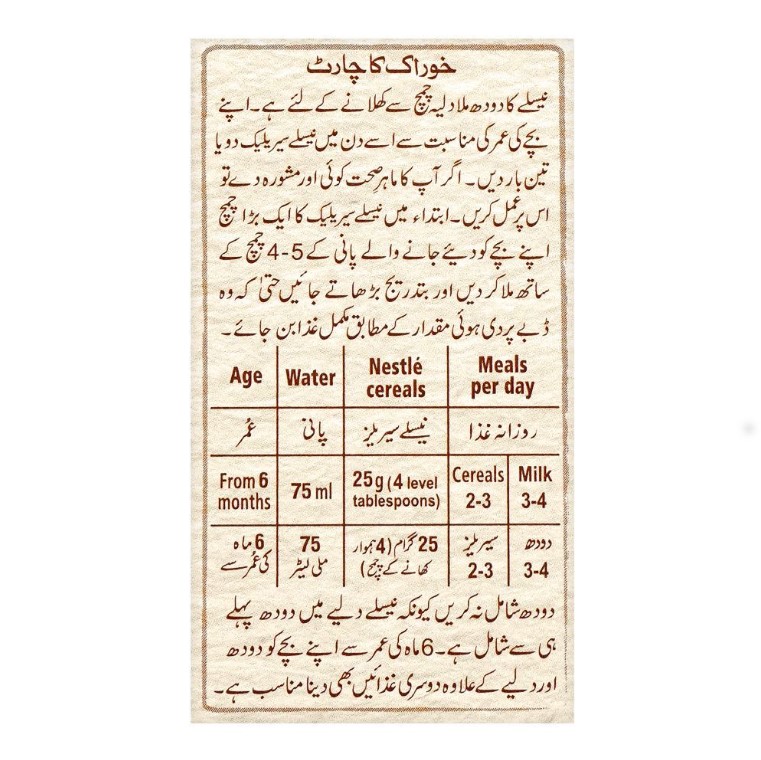 خوراک کا چارٹ
نیسلے کا دودھ ملا دلیہ چمچ سے کھلانے کے لئے ہے۔ اپنے
بچے کی عمر کی مناسبت سے اسے دن میں نیسلے سیریلیک دو یا
تین بار دیں۔ اگر آپ کا ماہر صحت کوئی اور مشورہ دے تو
اس پر عمل کریں۔ ابتداء میں نیسلے سیریلیک کا ایک بڑا چمچ
اپنے بچے کو دیئے جانے والے پانی کے 5-4 چمچ کے
ساتھ ملا کر دیں اور بتدریج بڑھاتے جائیں حتیٰ کہ وہ
ڈبے پر دی ہوئی مقدار کے مطابق مکمل غذا بن جائے۔
Age Water Nestlé cereals Meals per day
عُمر پانی نیسلے سیریلز روزانہ غذا
From 6 months 75 ml 25g (4 level tablespoons) Cereals 2-3 Milk 3-4
6 ماہ کی عُمر سے 75 ملی لیٹر 25 گرام (4 ہموار کھانے کے چمچ) سیریلز 2-3 دودھ 3-4
دودھ شامل نہ کریں کیونکہ نیسلے دلیے میں دودھ پہلے
ہی سے شامل ہے۔ 6 ماہ کی عمر سے اپنے بچے کو دودھ
اور دلیے کے علاوہ دوسری غذائیں بھی دینا مناسب ہے۔